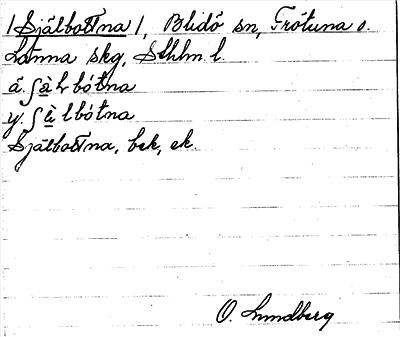 /Själbottna/, Blidö sn, Frötuna o.
Länna skg, Sthlm l.
ä. ʃà lbótna
y. ʃà lbótna
Själbottna, bek, ek.
O. Lundberg